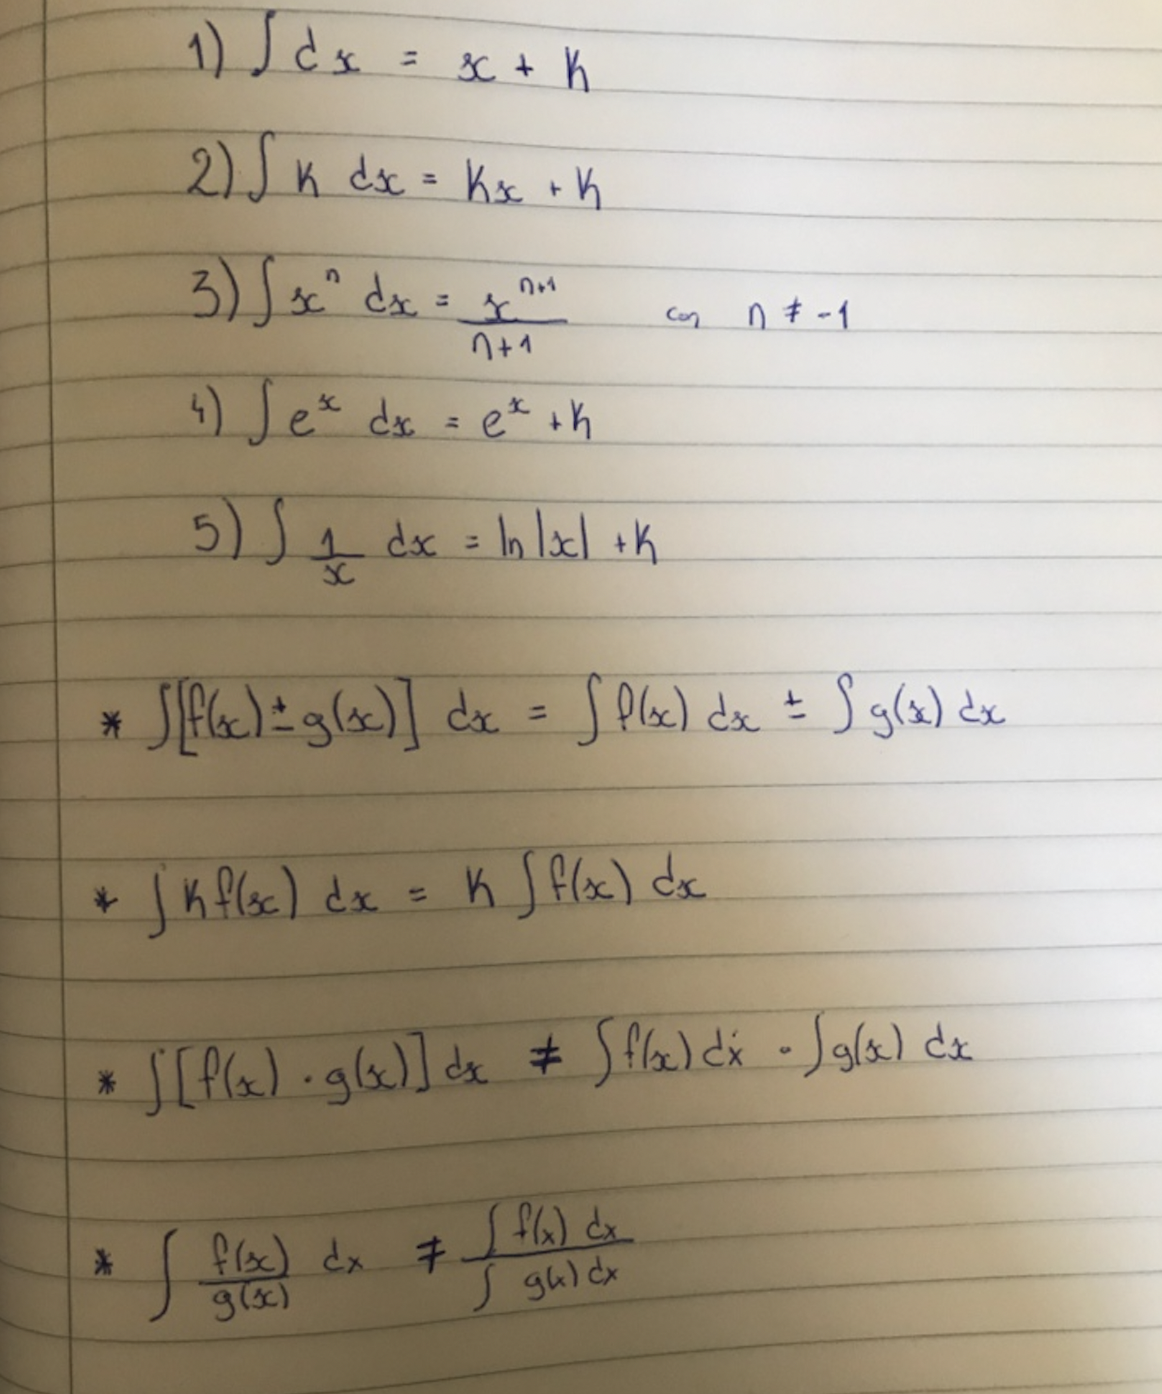 1) ∫ dx = x + K
2) ∫ K dx = Kx + K
3) ∫ xⁿ dx = xⁿ⁺¹/n+1 con n ≠ -1
4) ∫ eˣ dx = eˣ + K
5) ∫ 1/x dx = ln |x| + K
* ∫[f(x) ± g(x)] dx = ∫ f(x) dx ± ∫ g(x) dx
* ∫ K f(x) dx = K ∫ f(x) dx
* ∫ [f(x) · g(x)] dx ≠ ∫ f(x) dx · ∫ g(x) dx
* ∫ f(x)/g(x) dx ≠ ∫ f(x) dx / ∫ g(x) dx